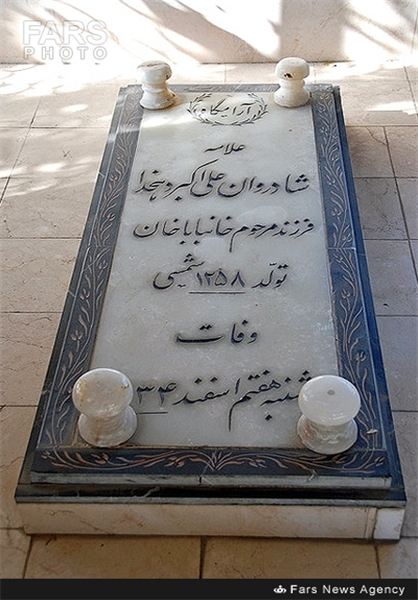 FARS
PHOTO
آرامگاه
علامه
شادروان علی اکبر دهخدا
فرزند مرحوم خانبابا خان
تولد ۱۲۵۸ شمسی
وفات
شنبه هفتم اسفند ۳۴
Fars News Agency